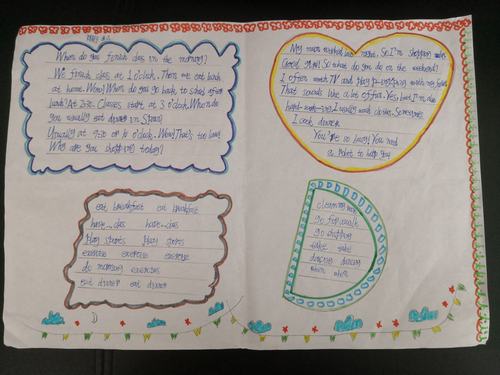 When do you finish class in the morning?
We finish class at 1 o'clock. Then we eat lunch
at home. Wow! When do you go back to school after
lunch? At 2:30. Classes start at 3 o'clock. When do
you usually eat dinner in Spain?
Usually at 9:30 or 10 o'clock. Wow! That's too late!
Why are you shopping today?
My mum worked last night. So I'm shopping
Good girl! So what do you do on the weekend?
I often watch TV and play ping-pong with my father
That sounds like a lot of fun. Yes, but I'm also
hard-working. I usually wash clothes. Sometimes
I cook dinner
You're so busy! You need
a Robot to help you
eat breakfast eat breakfast
have class have class
Play sports Play sports
exercise exercise exercise
do morning exercises
eat dinner eat dinner
clean my room
go for walk
go shopping
take take
dancing dancing
when when
D